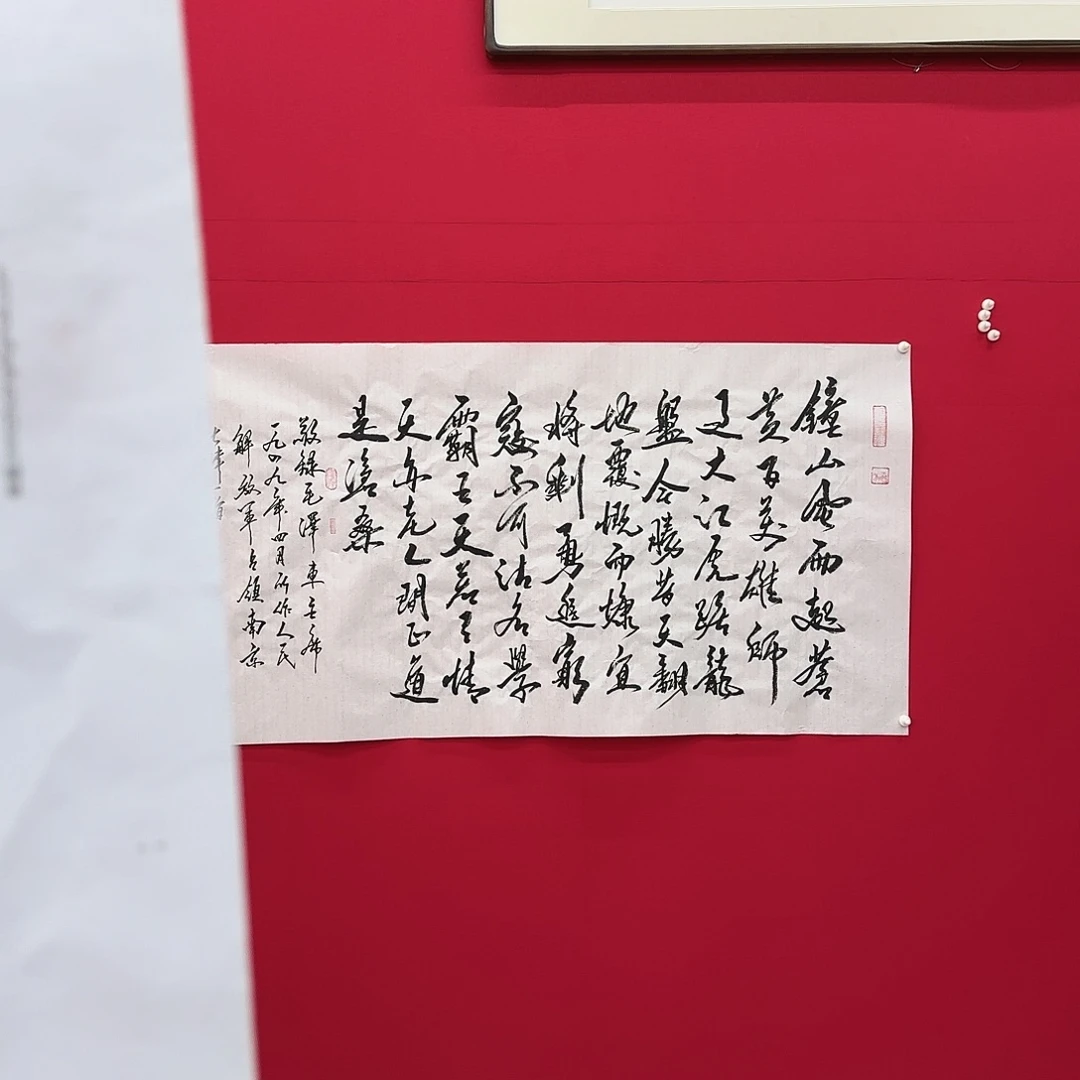 鐘山風雨起蒼
黃百萬雄師
過大江虎踞龍
盤今勝昔天翻
地覆慨而慷宜
將剩勇追窮
寇不可沽名學
霸王天若有情
天亦老人間正道
是滄桑
敬錄毛澤東主席
一九四九年四月所作人民
解放軍占領南京